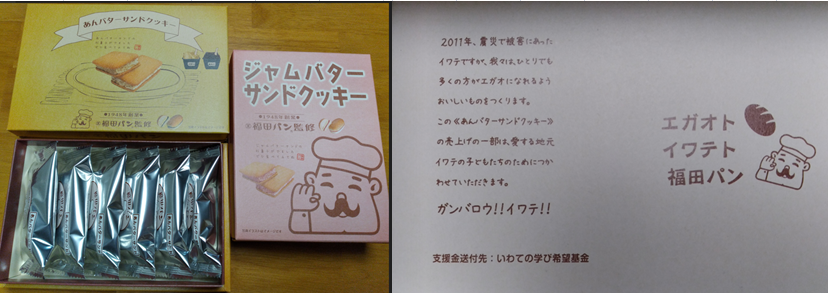 あんバターサンドクッキー
福田パン監修
ジャムバター
サンドクッキー
福田パン監修
2011年、震災で被害にあった
イワテですが、我々は、ひとりでも
多くの方がエガオになれるよう
おいしいものをつくります。
この《あんバターサンドクッキー》
の売上げの一部は、愛する地元
イワテの子どもたちのためにつか
わせていただきます。
ガンバロウ!!イワテ!!
支援金送付先：いわての学び希望基金
エガオト
イワテト
福田パン